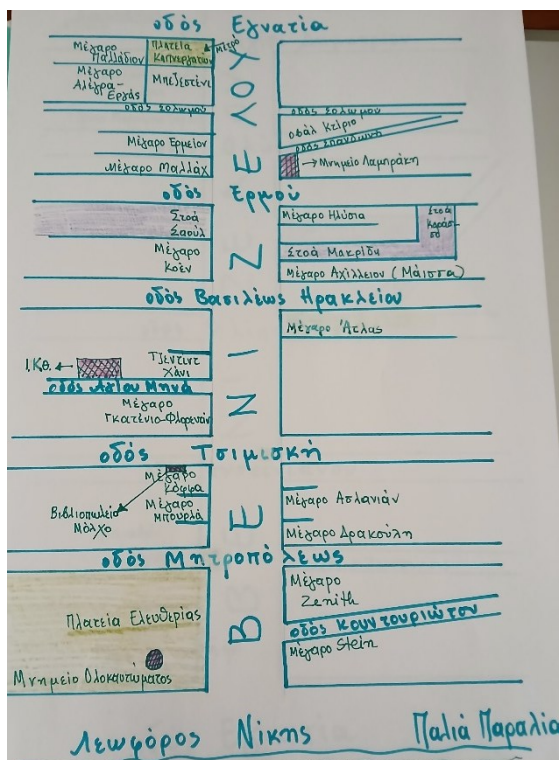 οδὸς Εγνατία
Μέγαρο
Παλλάδιον
Πλατεία
Καπνεργατών
Μετρό
Μέγαρο
Αλέγρα-
Εργάς
Μπεζεστένι
οδὸς Σολωμού
οδὸς Σολωμού
Οβάλ Κτίριο
οδὸς Σπανδωνή
Μέγαρο Ερμείον
Μέγαρο Μαλλάχ
Μνημείο Λαμπράκη
οδὸς Ερμού
Στοά
Σαούλ
Μέγαρο
Κοέν
Μέγαρο Ηλύσια
Στοά
Καράσ-
σο
Στοά Μακρίδη
Μέγαρο Αχίλλειον (Μάισσα)
οδὸς Βασιλέως Ηρακλείου
Μέγαρο Άτλας
Τζεντίντ
Χάνι
Ι.Κθ.
οδὸς Αγίου Μηνά
Μέγαρο
Γκατένιο-Φλωρεντίν
οδὸς Τσιμισκή
Μέγαρο
Κόφφα
Μέγαρο
Μπουρλά
Βιβλιοπωλείο
Μόλχο
Μέγαρο Ασλανιάν
Μέγαρο Δρακούλη
οδὸς Μητροπόλεως
Μέγαρο
Zenith
οδὸς Κουντουριώτου
Μέγαρο Stein
Πλατεία Ελευθερίας
Μνημείο Ολοκαυτώματος
ΒΕΝΙΖΕΛΟΥ
Λεωφόρος Νίκης
Παλιά Παραλία